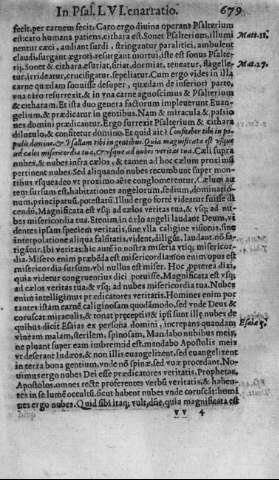 In Psal. LVI. enarratio. 679
fecit, per carnem fecit. Caro ergo diuina operans Psalterium
est: caro humana patiens, cithara est. Sonet Psalterium, illumi
nentur cæci, audiant surdi, stringatur paralitici, ambulent
claudi, surgant ægroti, resurgant mortui: iste est sonus Psalte-
rij. Sonet & cithara, esuriat, sitiat, dormiat, teneatur, flagelle-
tur, irrideatur, crucifigatur, sepeliatur. Cum ergo vides in illa
carne quædam sonuisse desuper, quædam de inferiori parte,
vna caro resurrexit, & in vna carne agnoscimus & Psalterium
& citharam. Et ista duo genera factorum impleuerunt Euan-
gelium, & prædicatur in gentibus. Nam & miracula, & passio
nes domini prædicantur. Ergo surrexit Psalterium & cithara
diluculo, & confitetur domino. Et quid ait? Confitebor tibi in po
pulis domine, & Psallam tibi in gentibus. Quia magnificata est vsque
ad cælos misericordia tua, & vsque ad nubes veritas tua. Cæli supra
nubes, & nubes infra cælos, & tamen ad hoc cælum proximū
pertinent nubes. Sed aliquando nubes recumbunt super mon-
tes, vsque adeo in proximo aëre conglomerantur. Cælum au
tem sursum est, habitationes angelorum, sedium, dominatio-
num, principatuum, potestatum. Illud ergo forte videatur fuisse di
cendū, Magnificata est vsque ad cælos veritas tua, & vsque ad nu-
bes misericordia tua. Etenim in cælo angeli laudant Deum, vi
dentes ipsam speciem veritatis, sine vlla caligine visionis, sine
interpolatione aliqua falsitatis, vident, diligunt, laudant, nō fa-
tigantur. Ibi veritas: hic autē in nostra miseria vtique misericor-
dia. Misero enim præbenda est misericordia. Non enim opus est
misericordia sursum, vbi nullus est miser. Hoc propterea dixi,
quia videtur congruentius dici potuisse, Magnificata est vsque
ad cælos veritas tua, & vsque ad nubes misericordia tua. Nubes
enim intelligimus prædicatores veritatis. Homines enim por
tantes istam carnē caliginosam quodāmodo, sed vnde Deus &
coruscat miraculis, & tonat præceptis: & ipsi sunt illę nubes de
quibus dicit Esaias ex persona domini, increpans quandam
vineam malam, sterilem, spinosam, Mandabo nubibus meis,
ne pluant super eam imbrem: id est, mandabo Apostolis meis
vt deserant Iudæos, & non illis euangelizent, sed euangelizent
in terra bona gentium, vnde nō spinæ, sed vuæ procedant. No-
uimus ergo nubes Dei esse prædicatores veritatis, Prophetas,
Apostolos, omnes recte proferentes verbū veritatis, & haben-
tes in se lumē occultū, sicut habent nubes vnde coruscāt: homi
nes ergo nubes. Quid sibi itaque vult, dñe, quia magnificata est
Matt. 11.
Mat. 27.
Esaiæ 5.
VV 4